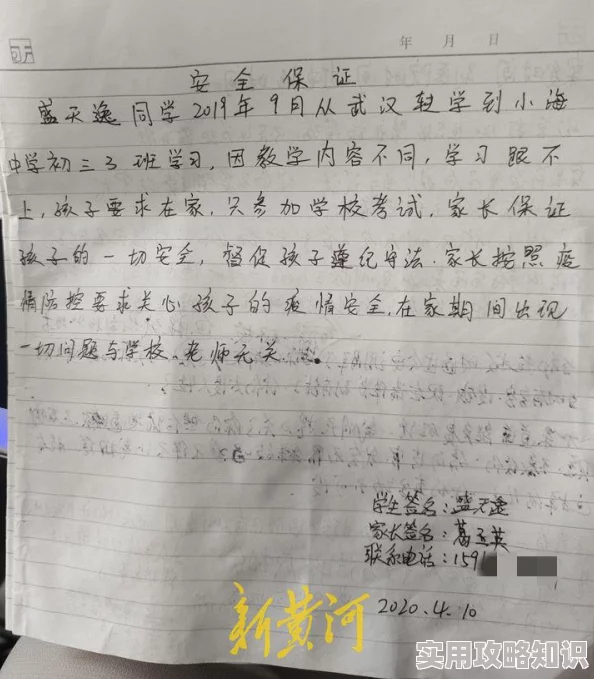 年 月 日
安全保证
盛天逸同学2019年9月从武汉转学到小海
中学初三3班学习,因教学内容不同,学习跟不
上,孩子要求在家,只参加学校考试,家长保证
孩子的一切安全,督促孩子遵纪守法.家长按照疫
情防控要求关心孩子的疫情安全,在家期间出现
一切问题与学校、老师无关.
学生签名:盛天逸
家长签名:葛玉英
联系电话:1591
2020.4.10
新黄河
实用攻略知识